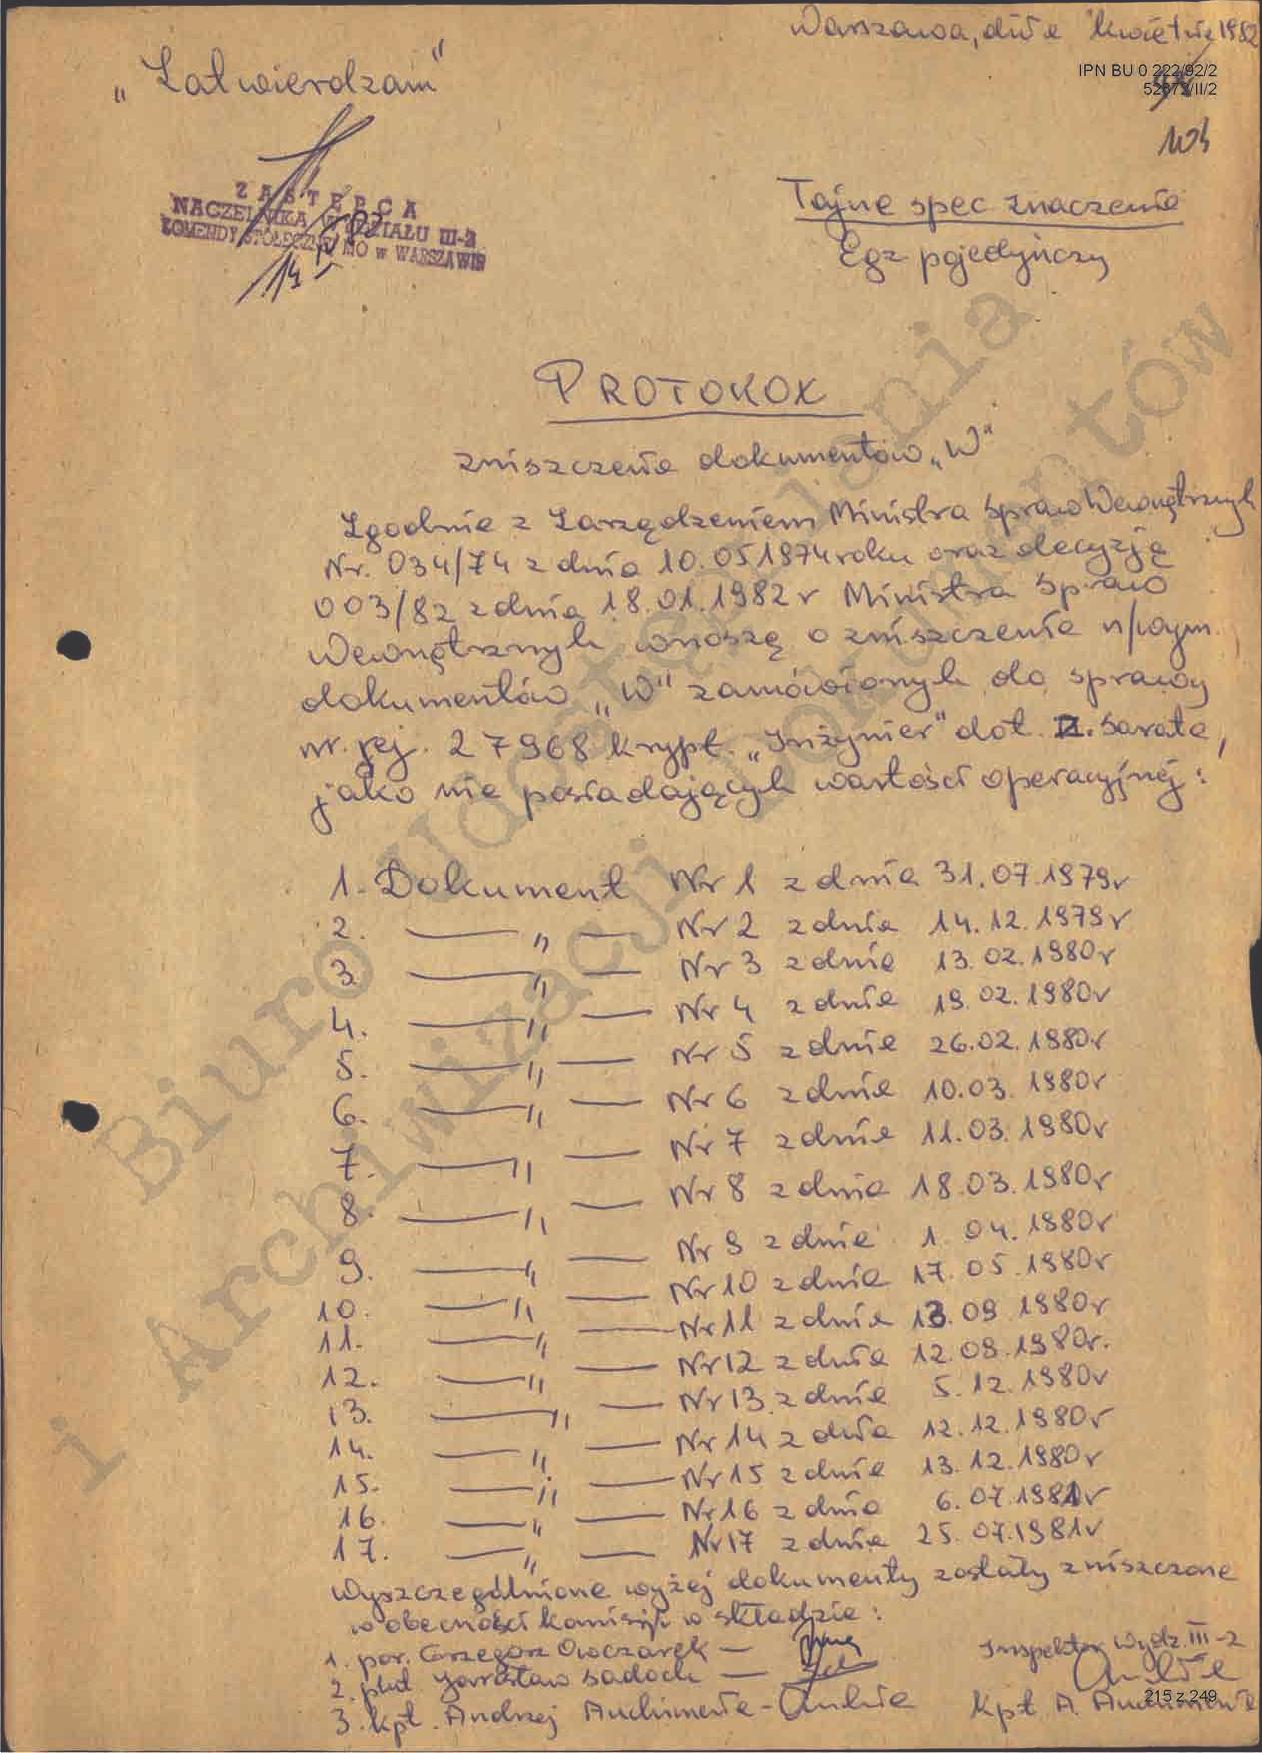 Warszawa, dnia kwietnia 1982
IPN BU 0 222/92/2
52672/II/2
„Zatwierdzam"
ZASTĘPCA
NACZELNIKA WYDZIAŁU III-2
KOMENDY STOŁECZNEJ MO w WARSZAWIE
Tajne spec znaczenia
Egz pojedyńczy
PROTOKÓŁ
zniszczenia dokumentów „W"
Zgodnie z Zarządzeniem Ministra Spraw Wewnętrznych
Nr. 034/74 z dnia 10.05.1974 roku oraz decyzją
003/82 z dnia 18.01.1982 r Ministra Spraw
Wewnętrznych wnoszę o zniszczenie n/wym.
dokumentów „W" zamówionych do sprawy
nr. rej. 27968 krypt. „Inżynier" dot. Z. Sarata,
jako nie posiadających wartości operacyjnej:
1. Dokument Nr 1 z dnia 31.07.1979r
2. —„— Nr 2 z dnia 14.12.1979r
3. —„— Nr 3 z dnia 13.02.1980r
4. —„— Nr 4 z dnia 19.02.1980r
5. —„— Nr 5 z dnia 26.02.1980r
6. —„— Nr 6 z dnia 10.03.1980r
7. —„— Nr 7 z dnia 11.03.1980r
8. —„— Nr 8 z dnia 18.03.1980r
9. —„— Nr 9 z dnia 1.04.1980r
10. —„— Nr 10 z dnia 17.05.1980r
11. —„— Nr 11 z dnia 13.09.1980r
12. —„— Nr 12 z dnia 12.09.1980r.
13. —„— Nr 13 z dnia 5.12.1980r
14. —„— Nr 14 z dnia 12.12.1980r
15. —„— Nr 15 z dnia 13.12.1980r
16. —„— Nr 16 z dnia 6.07.1981r
17. —„— Nr 17 z dnia 25.07.1981r
Wyszczególnione wyżej dokumenty zostały zniszczone
w obecności komisji w składzie:
1. por. Grzegorz Owczarek —
2. plut Jarosław Sadoch —
3. kpt. Andrzej Auchimenia -
Inspektor Wydz. III-2
kpt A. Auchimenia
215 z 249
Biuro Udostępniania
i Archiwizacji Dokumentów